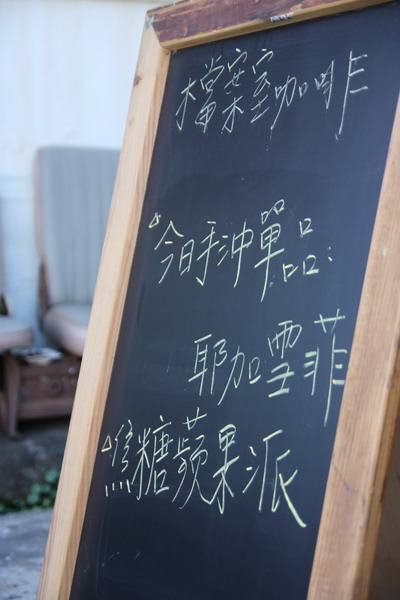 檔案室咖啡
今日手沖單品:
耶加雪菲
焦糖蘋果派